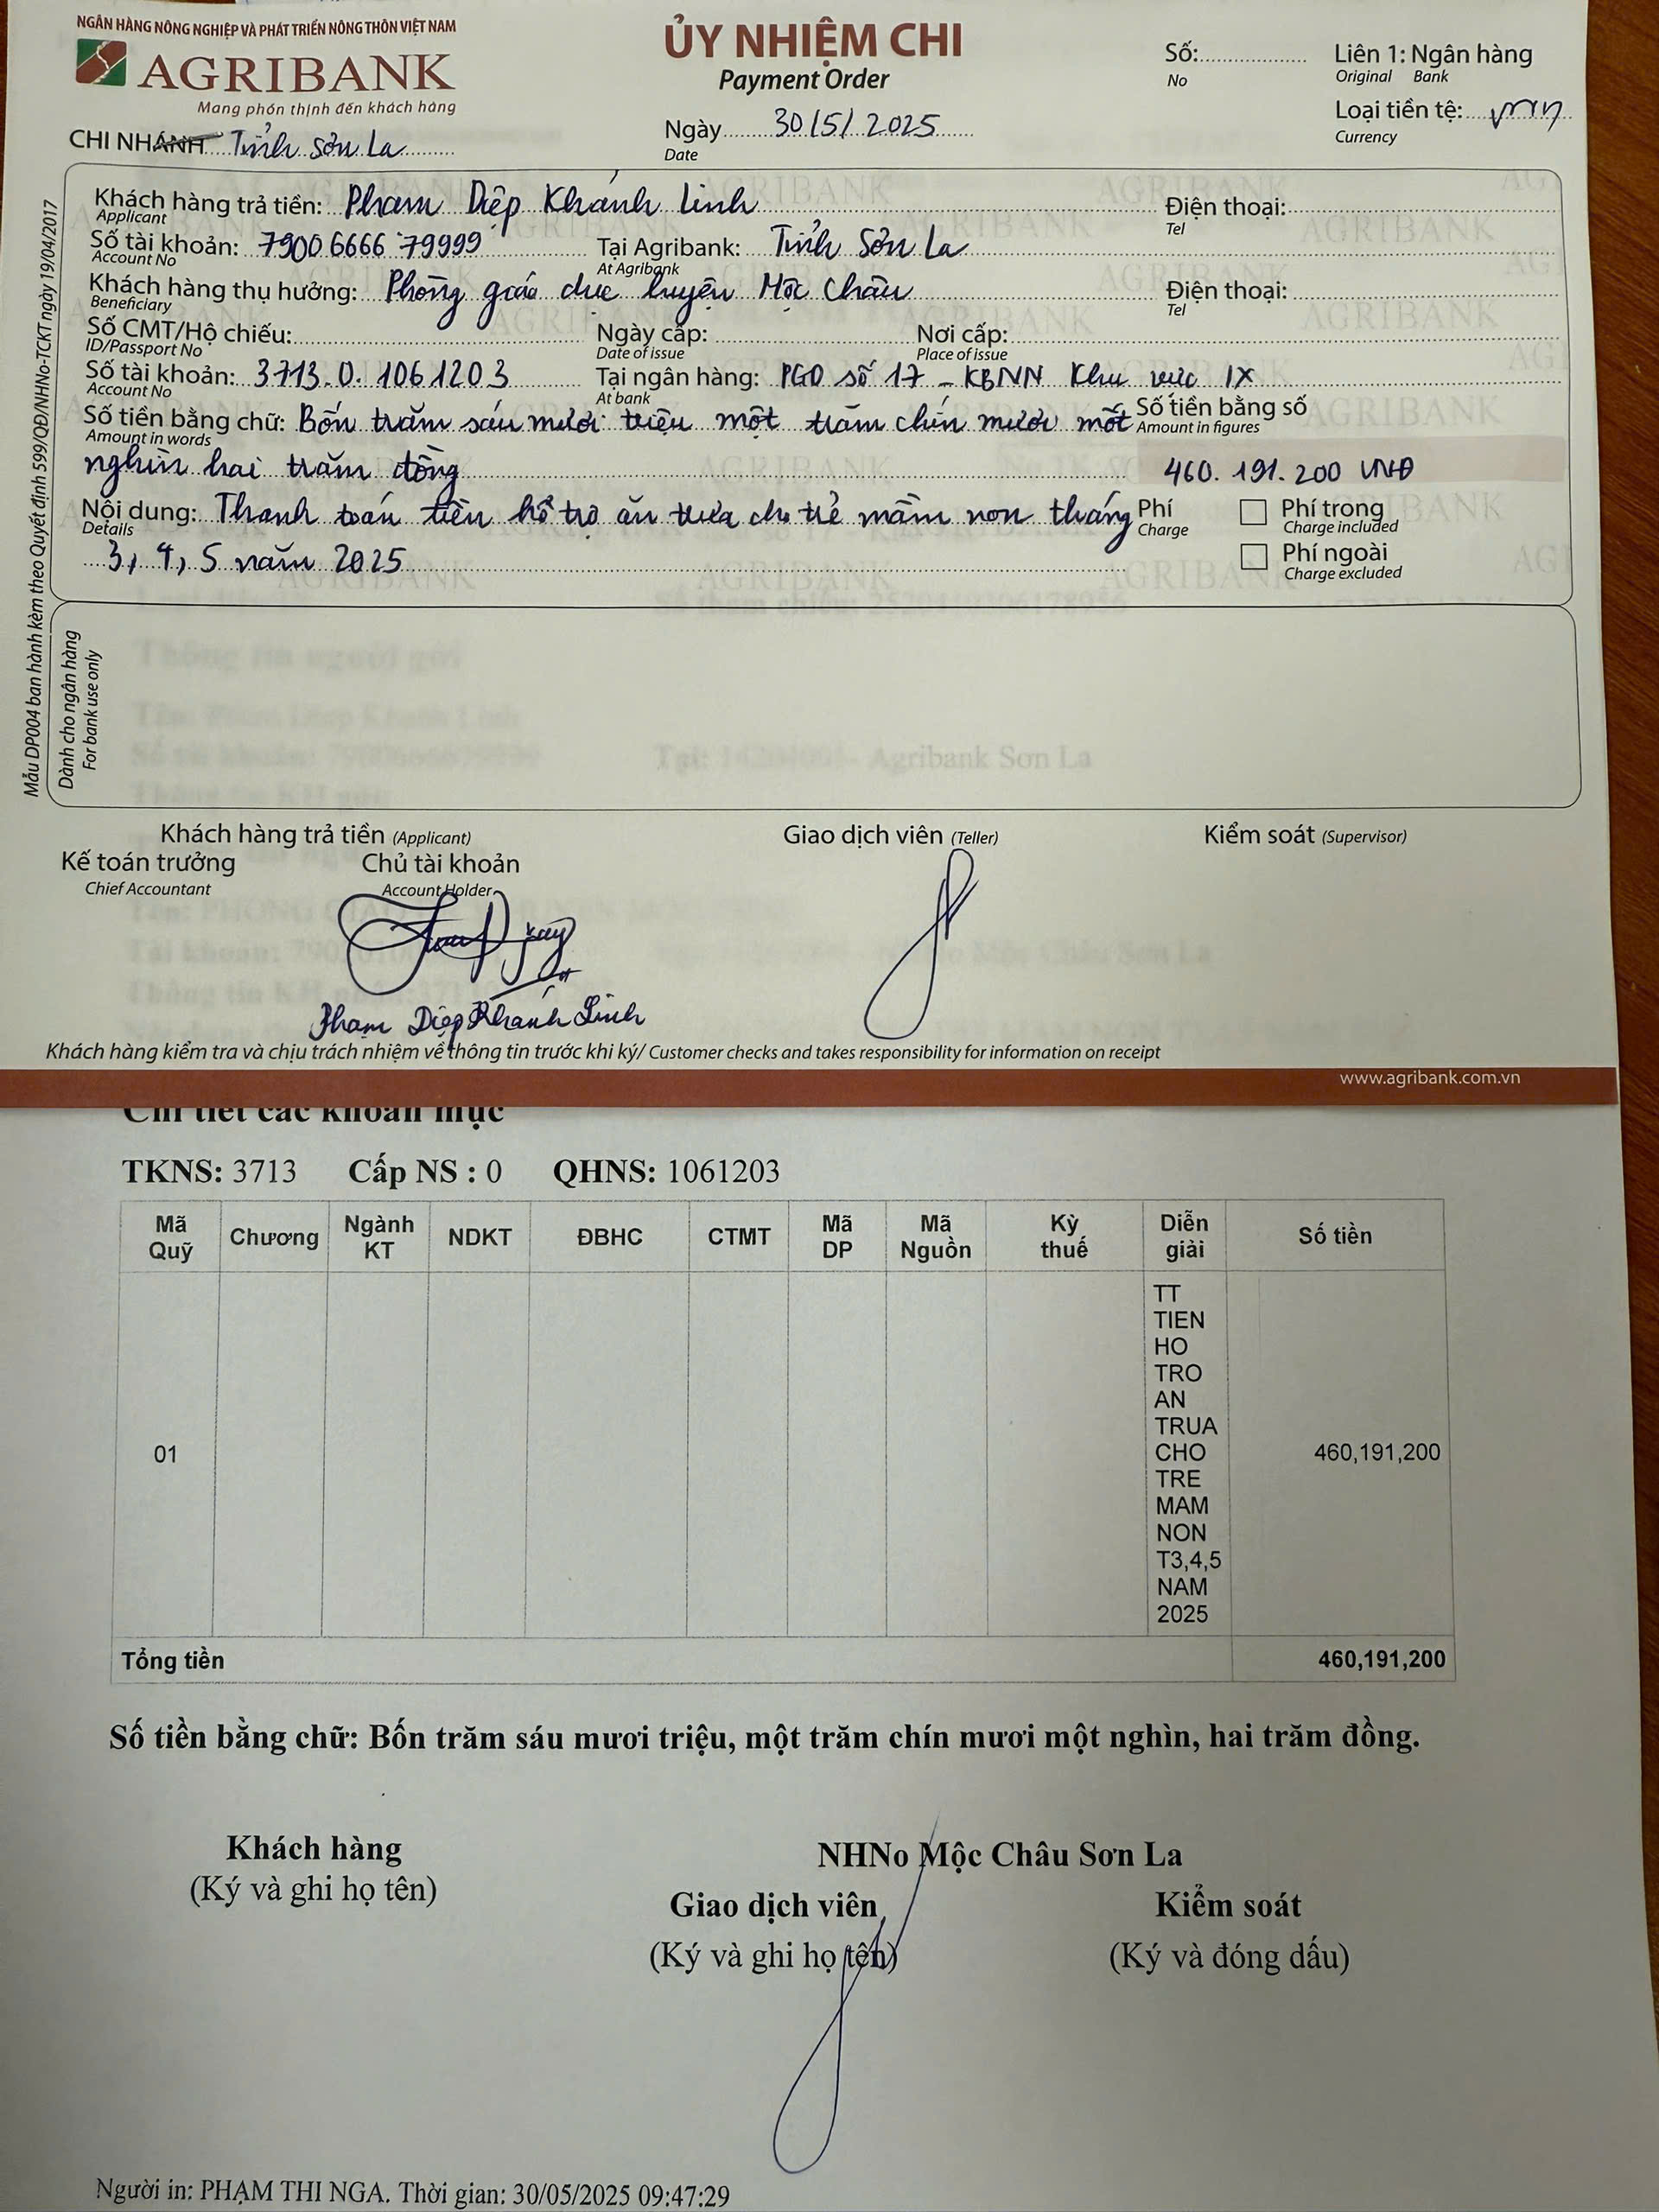 NGÂN HÀNG NÔNG NGHIỆP VÀ PHÁT TRIỂN NÔNG THÔN VIỆT NAM
AGRIBANK
Mang phồn thịnh đến khách hàng
CHI NHÁNH Tỉnh Sơn La
ỦY NHIỆM CHI
Payment Order
Ngày 30/5/2025
Date
Số:
No
Liên 1: Ngân hàng
Original Bank
Loại tiền tệ: vnn
Currency
Mẫu DP004 ban hành kèm theo Quyết định 599/QĐ/NHNo-TCKT ngày 19/04/2017
Khách hàng trả tiền: Phạm Diệp Khánh Linh Điện thoại:
Applicant Tel
Số tài khoản: 7900 6666 79999 Tại Agribank: Tỉnh Sơn La
Account No At Agribank
Khách hàng thụ hưởng: Phòng giáo dục huyện Mộc Châu Điện thoại:
Beneficiary Tel
Số CMT/Hộ chiếu: Ngày cấp: Nơi cấp:
ID/Passport No Date of issue Place of issue
Số tài khoản: 3713.0.1061203 Tại ngân hàng: PGD số 17 - KBNN Khu vực IX
Account No At bank
Số tiền bằng chữ: Bốn trăm sáu mươi triệu một trăm chín mươi một Số tiền bằng số
Amount in words Amount in figures
nghìn hai trăm đồng 460.191.200 VNĐ
Nội dung: Thanh toán tiền hỗ trợ ăn trưa cho trẻ mầm non tháng Phí Phí trong
Details Charge Charge included
3, 4, 5 năm 2025 Phí ngoài
Charge excluded
Số tham chiếu:
Dành cho ngân hàng
For bank use only
Thông tin người gửi
Tên: Pham Diep Khanh Linh
Agribank Sơn La
Khách hàng trả tiền (Applicant) Giao dịch viên (Teller) Kiểm soát (Supervisor)
Kế toán trưởng Chủ tài khoản
Chief Accountant Account Holder
Phạm Diệp Khánh Linh
Khách hàng kiểm tra và chịu trách nhiệm về thông tin trước khi ký/ Customer checks and takes responsibility for information on receipt
www.agribank.com.vn
Chi tiết các khoản mục
TKNS: 3713 Cấp NS : 0 QHNS: 1061203
Mã Quỹ Chương Ngành KT NDKT ĐBHC CTMT Mã DP Mã Nguồn Kỳ thuế Diễn giải Số tiền
TT
TIEN
HO
TRO
AN
TRUA
01 CHO 460,191,200
TRE
MAM
NON
T3,4,5
NAM
2025
Tổng tiền 460,191,200
Số tiền bằng chữ: Bốn trăm sáu mươi triệu, một trăm chín mươi một nghìn, hai trăm đồng.
Khách hàng NHNo Mộc Châu Sơn La
(Ký và ghi họ tên)
Giao dịch viên Kiểm soát
(Ký và ghi họ tên) (Ký và đóng dấu)
Người in: PHẠM THI NGA. Thời gian: 30/05/2025 09:47:29